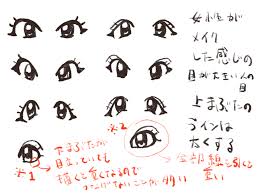 女性が
メイク
した感じの
目が大きい人の
上まぶたの
ラインは
太くする
※1
下まぶたが
目立っていても
描くと
なるので
ことが多い
※2
全部線を引くと